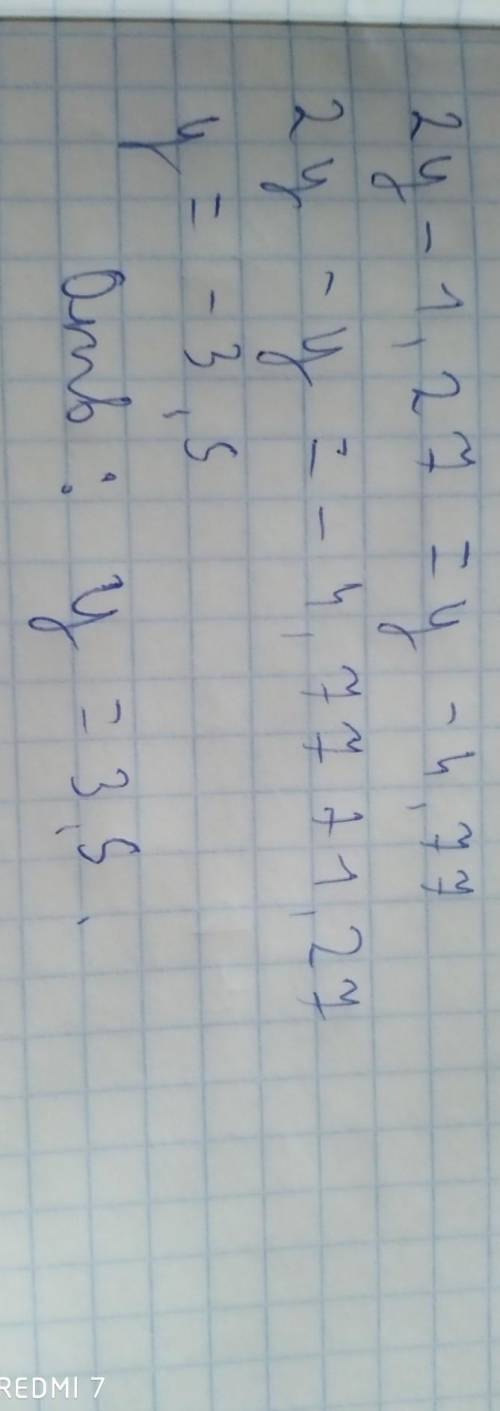 2y - 1,27 = y - 4,77
2y - y = - 4,77 + 1,27
y = - 3,5
Отв : y = 3,5 .
REDMI 7